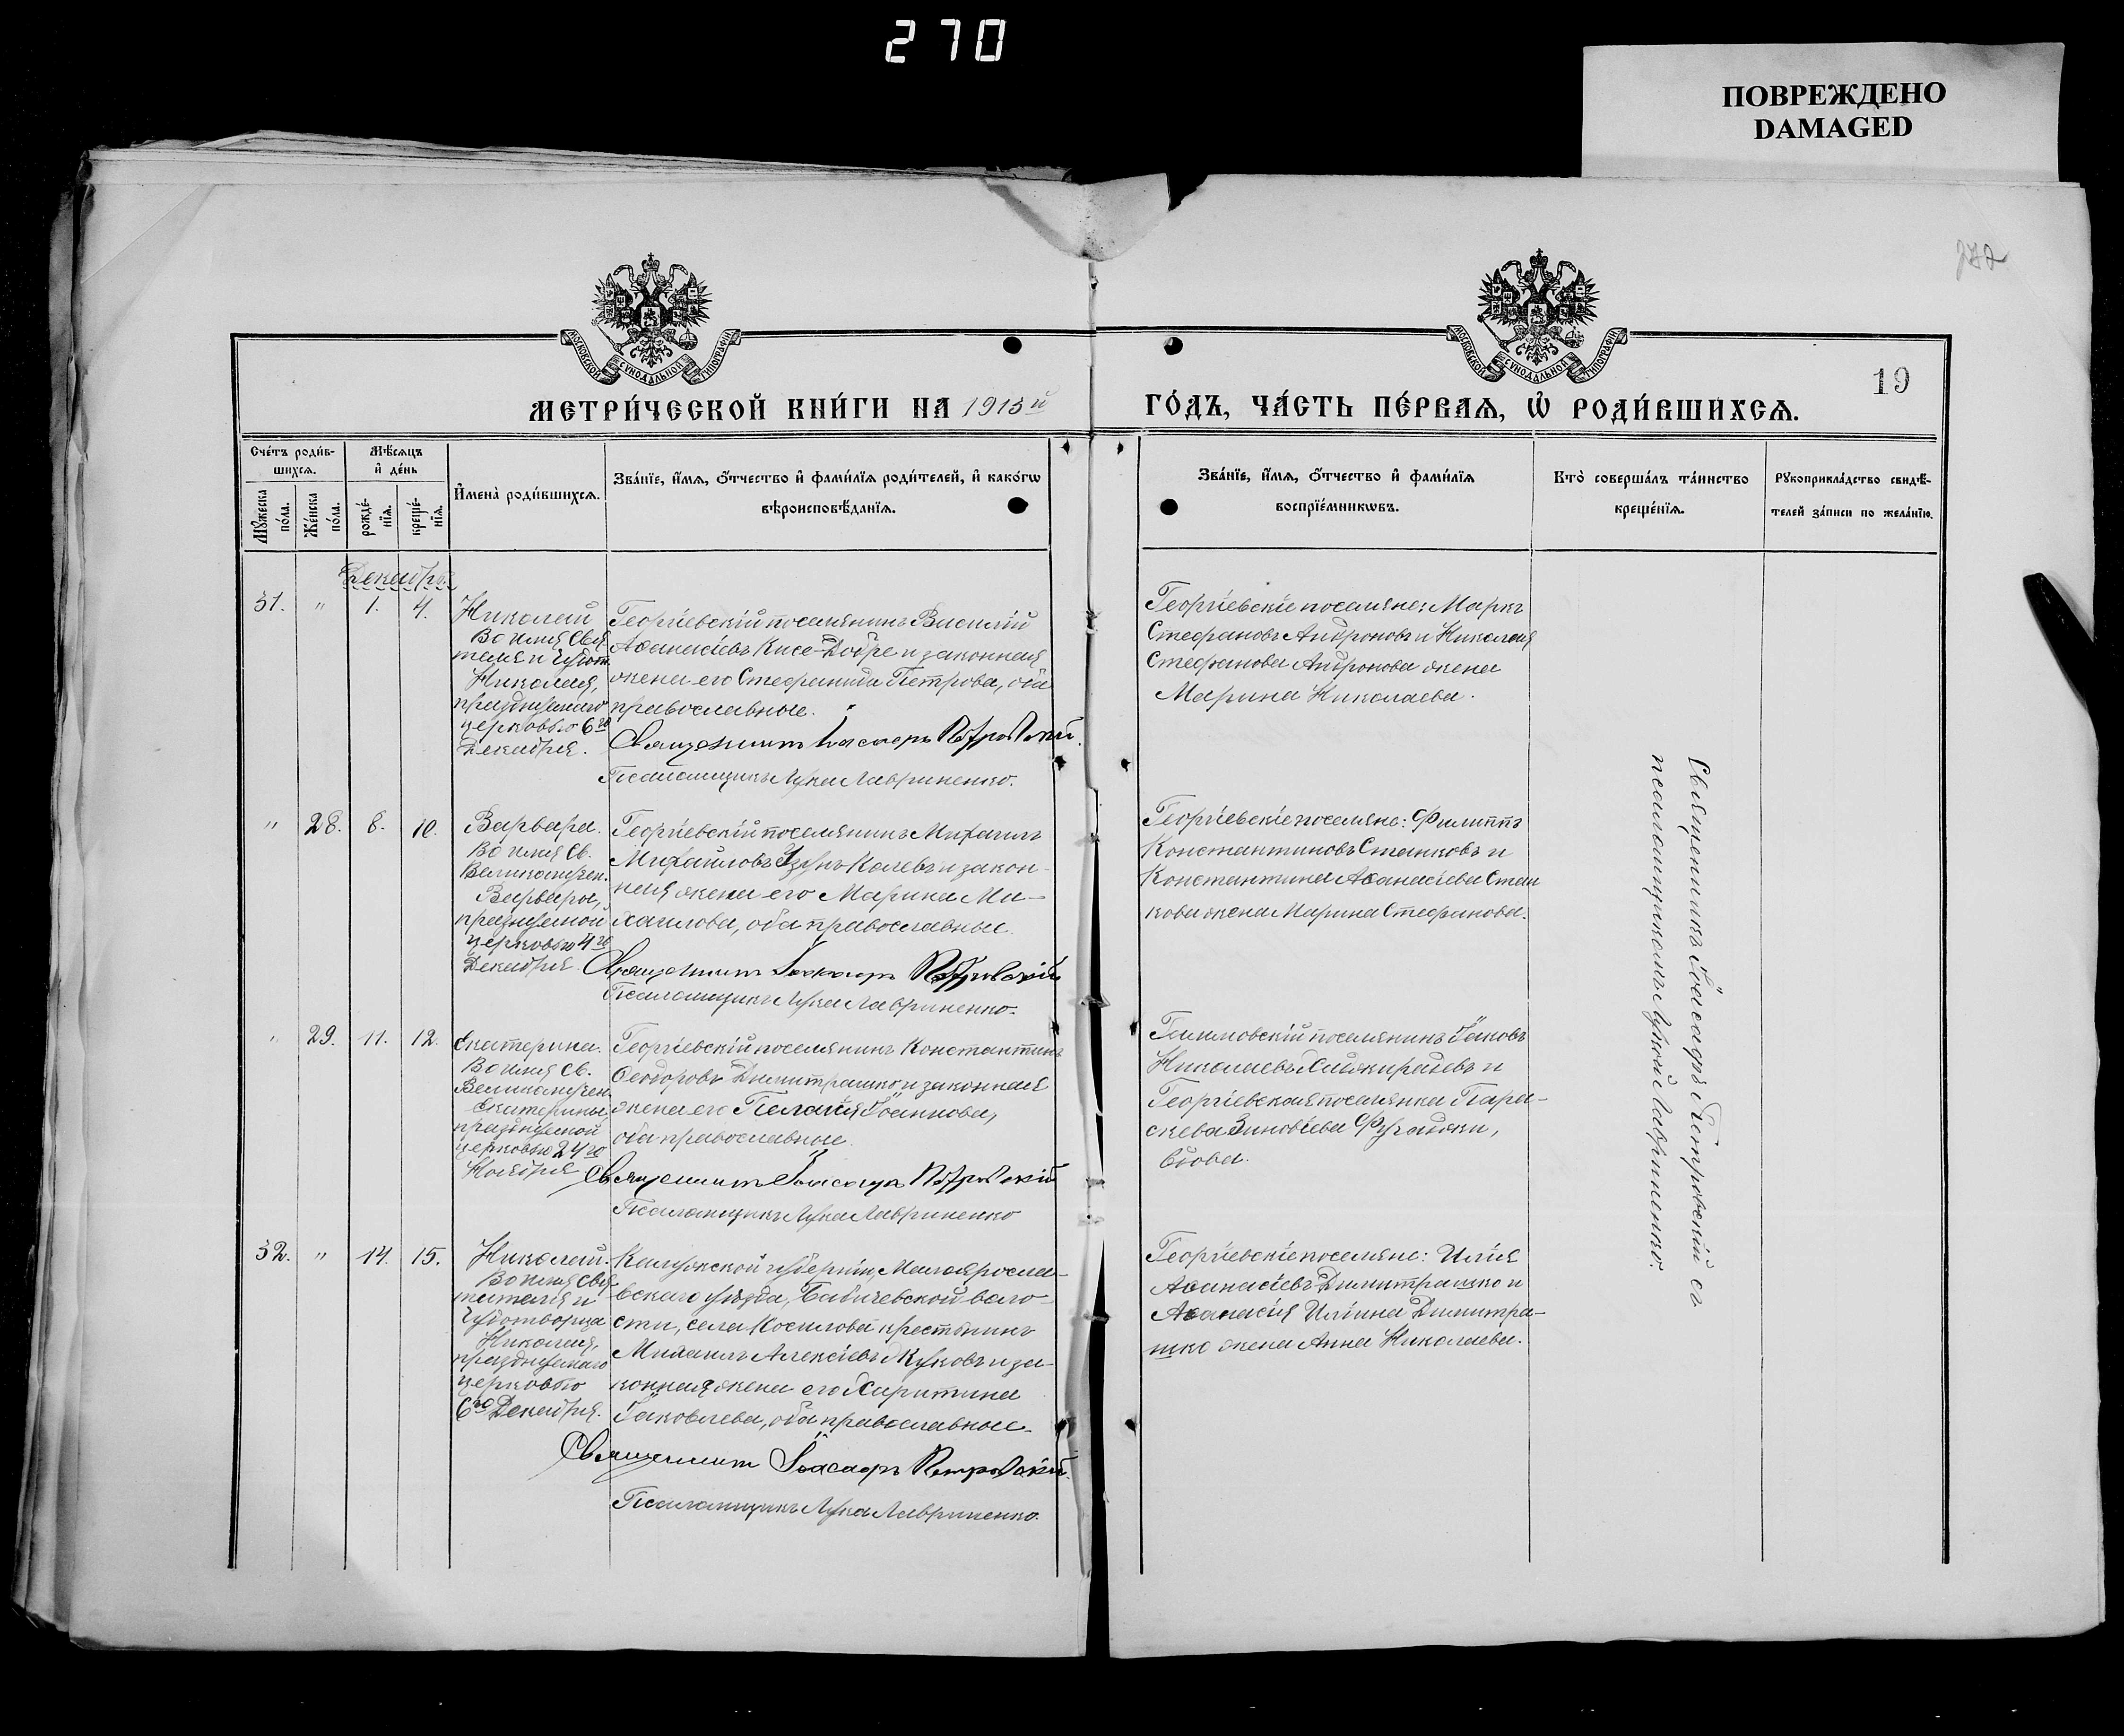 270
ПОВРЕЖДЕНО
DAMAGED
272
19
МОСКОВСКОЙ СУНОДАЛЬНОЙ ТИПОГРАФІИ
МОСКОВСКОЙ СУНОДАЛЬНОЙ ТИПОГРАФІИ
МЕТРИ́ЧЕСКОЙ КНИ́ГИ НА 1913й
ГО́ДЪ, ЧА́СТЬ ПЕ́РВАѦ, Ѡ҆ РОДИ́ВШИХСѦ.
Сче́тъ роди́в-
шихсѧ.
Мꙋ́жеска
по́ла.
Же́нска
по́ла.
Мѣ́сѧцъ
и҆ де́нь
рожде́-
нїѧ.
креще́-
нїѧ.
И҆мена̀ роди́вшихсѧ.
Зва́нїе, и҆́мѧ, о҆́тчество и҆ фами́лїѧ роди́телей, и҆ како́гѡ
вѣроисповѣ́данїѧ.
Зва́нїе, и҆́мѧ, о҆́тчество и҆ фами́лїѧ
воспрїе́мникѡвъ.
Кто̀ соверша́лъ та́инство
креще́нїѧ.
Рꙋкоприкла́дство свидѣ́-
телей за́писи по жела́нїю.
Декабрь.
31. " 1. 4.
Николай
Во имя Свя
теля и Чудот.
Николая,
празднуемаго
церковью 6го
Декабря.
Георгіевскій поселянинъ Василій
Аѳанасіевъ Кисе-Добре и законная
жена его Стефанида Петрова, оба
православные.
Священникъ Іоасафъ Петровскій.
Псаломщикъ Лука Лавриненко.
Георгіевскіе поселяне: Маркъ
Стефановъ Андроновъ и Николая
Стефанова Андронова жена
Марина Николаева.
" 28. 8. 10.
Варвара.
Во имя Св.
Великомучен.
Варвары,
празднуемой
церковью 4го
Декабря
Георгіевскій поселянинъ Михаилъ
Михайловъ Узунъ-Колевъ и закон-
ная жена его Марина Ми-
хаилова, оба православные.
Священникъ Іоасафъ Петровскій
Псаломщикъ Лука Лавриненко.
Георгіевскіе поселяне: Филиппъ
Константиновъ Станковъ и
Константина Аѳанасіева Стан
кова жена Марина Стефанова.
" 29. 11. 12.
Екатерина.
Во имя Св.
Великомучен.
Екатерины
празднуемой
церковью 24го
Ноября
Георгіевскій поселянинъ Константинъ
Ѳеодоровъ Димитрашко и законная
жена его Пелагія Іоаннова,
оба православные.
Священникъ Іоасафъ Петровскій
Псаломщикъ Лука Лавриненко
поселянинъ Іаковъ
Николаевъ и
Георгіевская поселянка Пара-
скева Зиновіева
вдова.
32. " 14. 15.
Николай.
Во имя Свя
тителя и
Чудотворца
Николая,
празднуемаго
церковью
6го Декабря.
Калужской губерніи, Малояросла-
вскаго уѣзда, Бабичевской воло-
сти, села крестьянинъ
Михаилъ Алексіевъ Жуковъ и за-
конная жена его Харитина
Іаковлева, оба православные.
Священникъ Іоасафъ Петровскій.
Псаломщикъ Лука Лавриненко.
Георгіевскіе поселяне: Илія
Аѳанасіевъ Димитрашко и
Аѳанасія Иліина Димитра-
шко жена Анна Николаева.
Священникъ Іоасафъ Петровскій съ
псаломщикомъ Лукой Лавриненко.